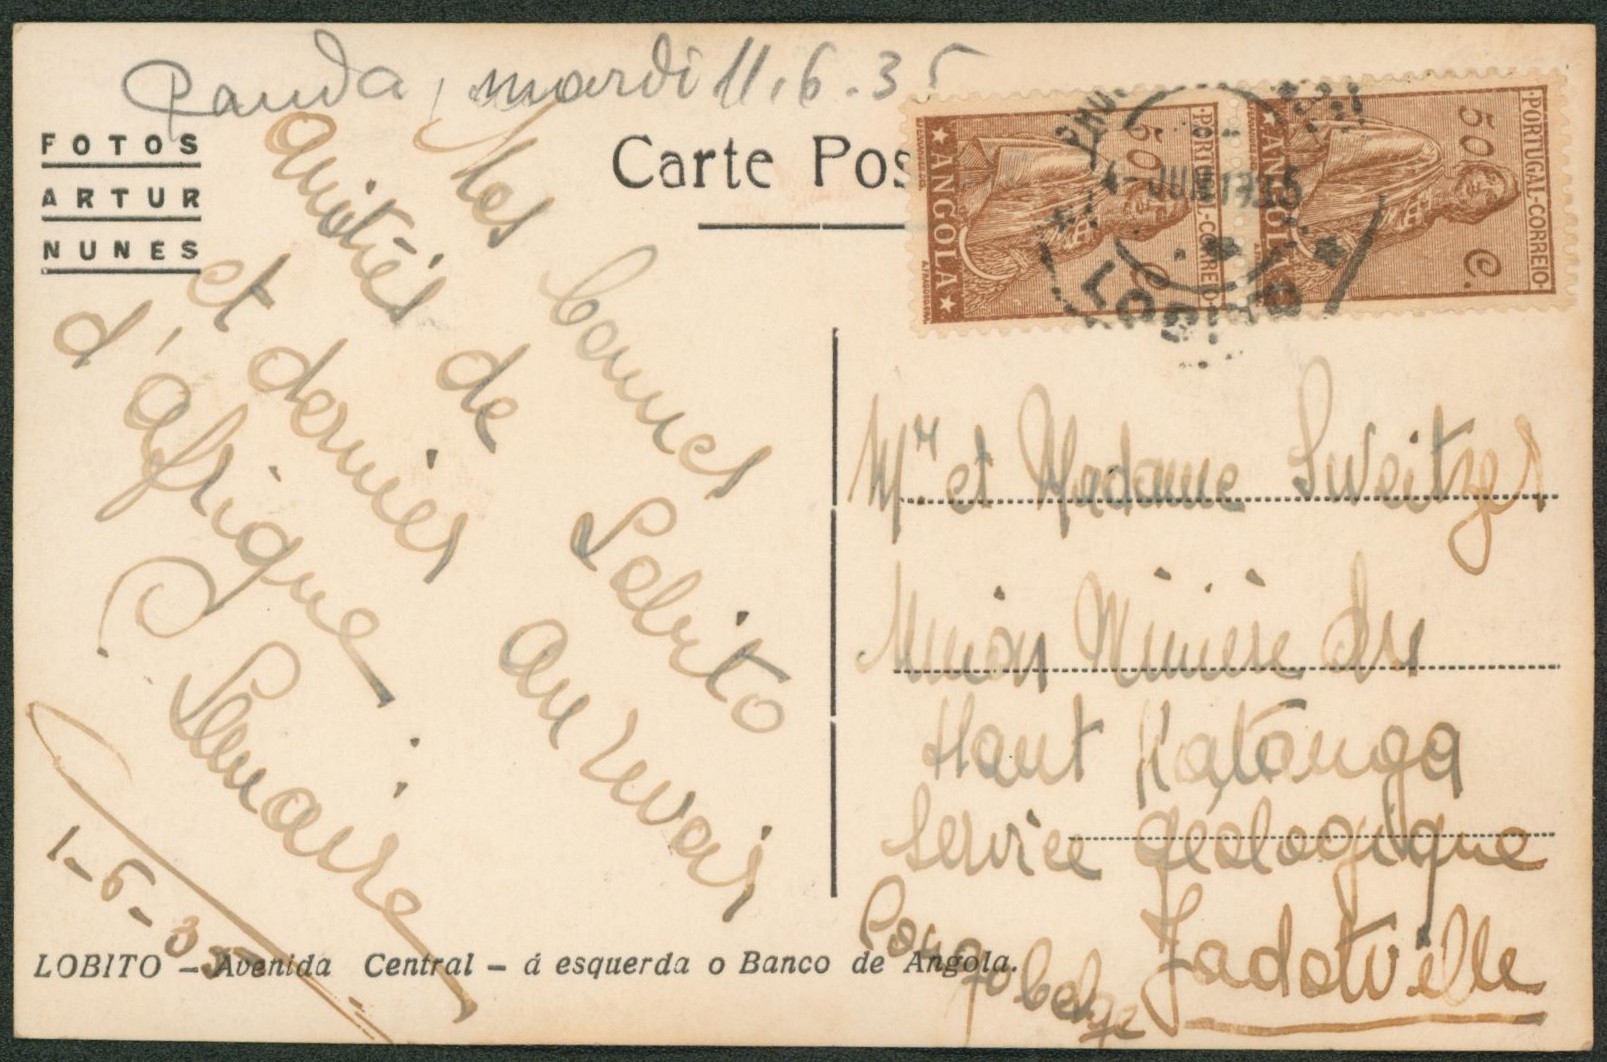 Panda, mardi 11.6.35
FOTOS
ARTUR
NUNES
Carte Pos
PORTUGAL-CORREIO
50 C.
ANGOLA
PORTUGAL-CORREIO
50 C.
ANGOLA
4-JUN 1935
LOBITO
Mes bonnes
amitiés de Lobito
et derniers au revoir
d'Afrique
Lemaire
1-6-35
Mr et Madame Sweitzer
Union Minière du
Haut Katanga
Service géologique
Jadotville
Congo belge
LOBITO – Avenida Central – á esquerda o Banco de Angola.